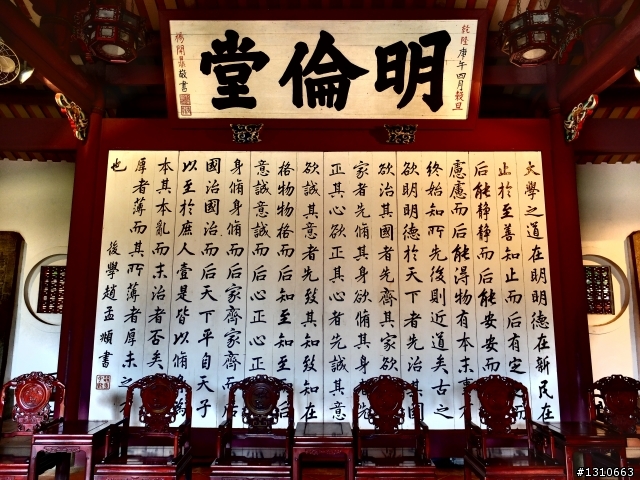 乾隆庚午四月穀旦
明倫堂
楊開鼎敬書
大學之道在明明德在新民在
止於至善知止而后有定
后能靜靜而后能安安而
慮慮而后能得物有本末事
終始知所先後則近道矣古之
欲明明德於天下者先治其國
欲治其國者先齊其家欲
家者先脩其身欲脩其身
正其心欲正其心者先誠其意
欲誠其意者先致其知致知在
格物物格而后知至知至
意誠意誠而后心正心正
身脩身脩而后家齊家齊而后
國治國治而后天下平自天子
以至於庶人壹是皆以脩身為
本其本亂而末治者否矣
厚者薄而其所薄者厚未之
也
後學趙孟頫書
#1310663